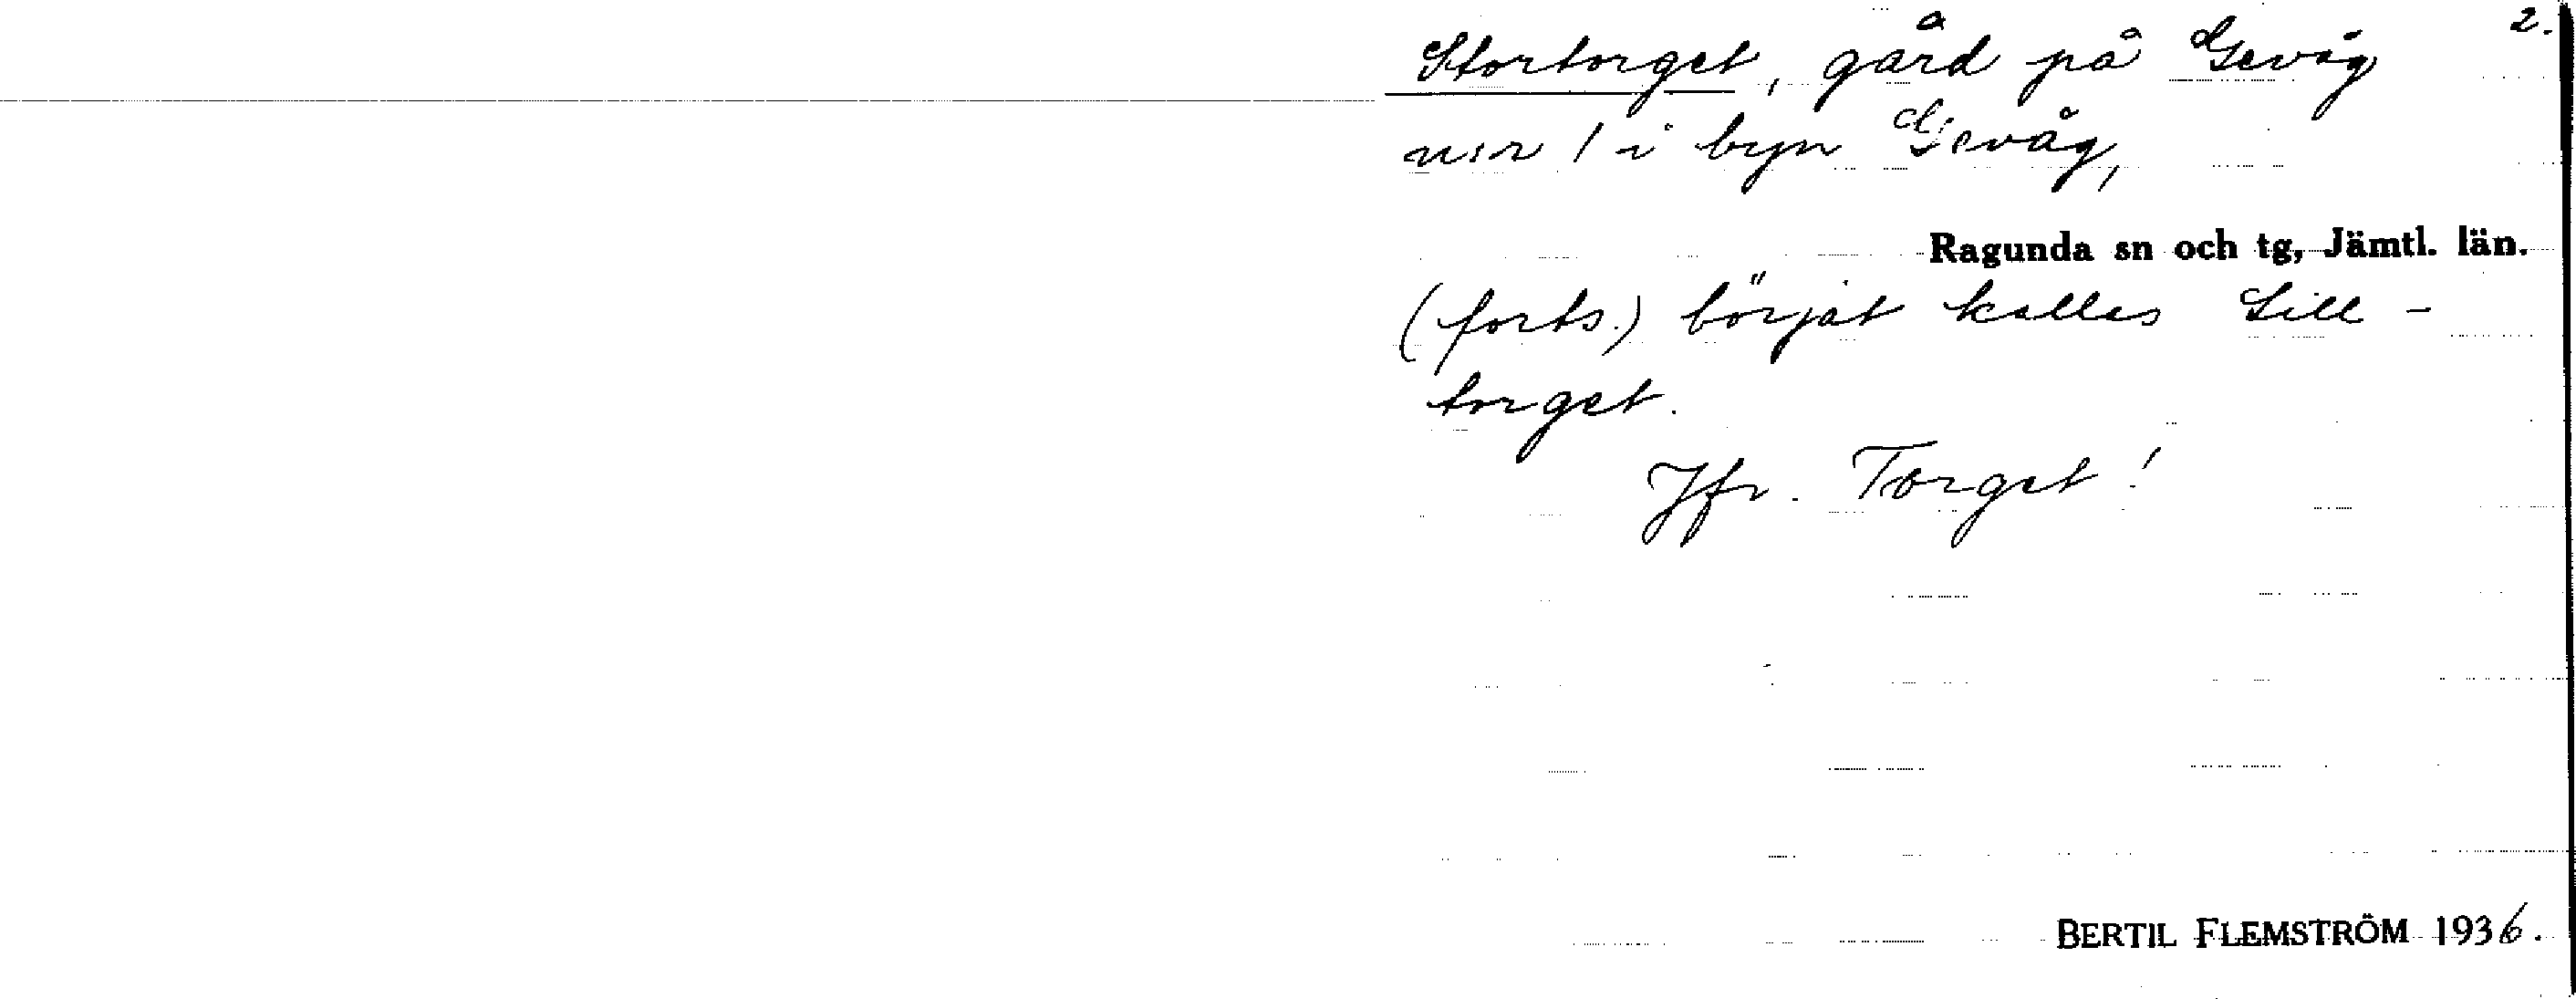 2.
Stortorget, gård på Gevåg
n:r 1 i byn Gevåg,
Ragunda sn och tg, Jämtl. län.
(forts.) börjat kallas Lill-
torget.
Jfr. Torget!
BERTIL FLEMSTRÖM 1936.